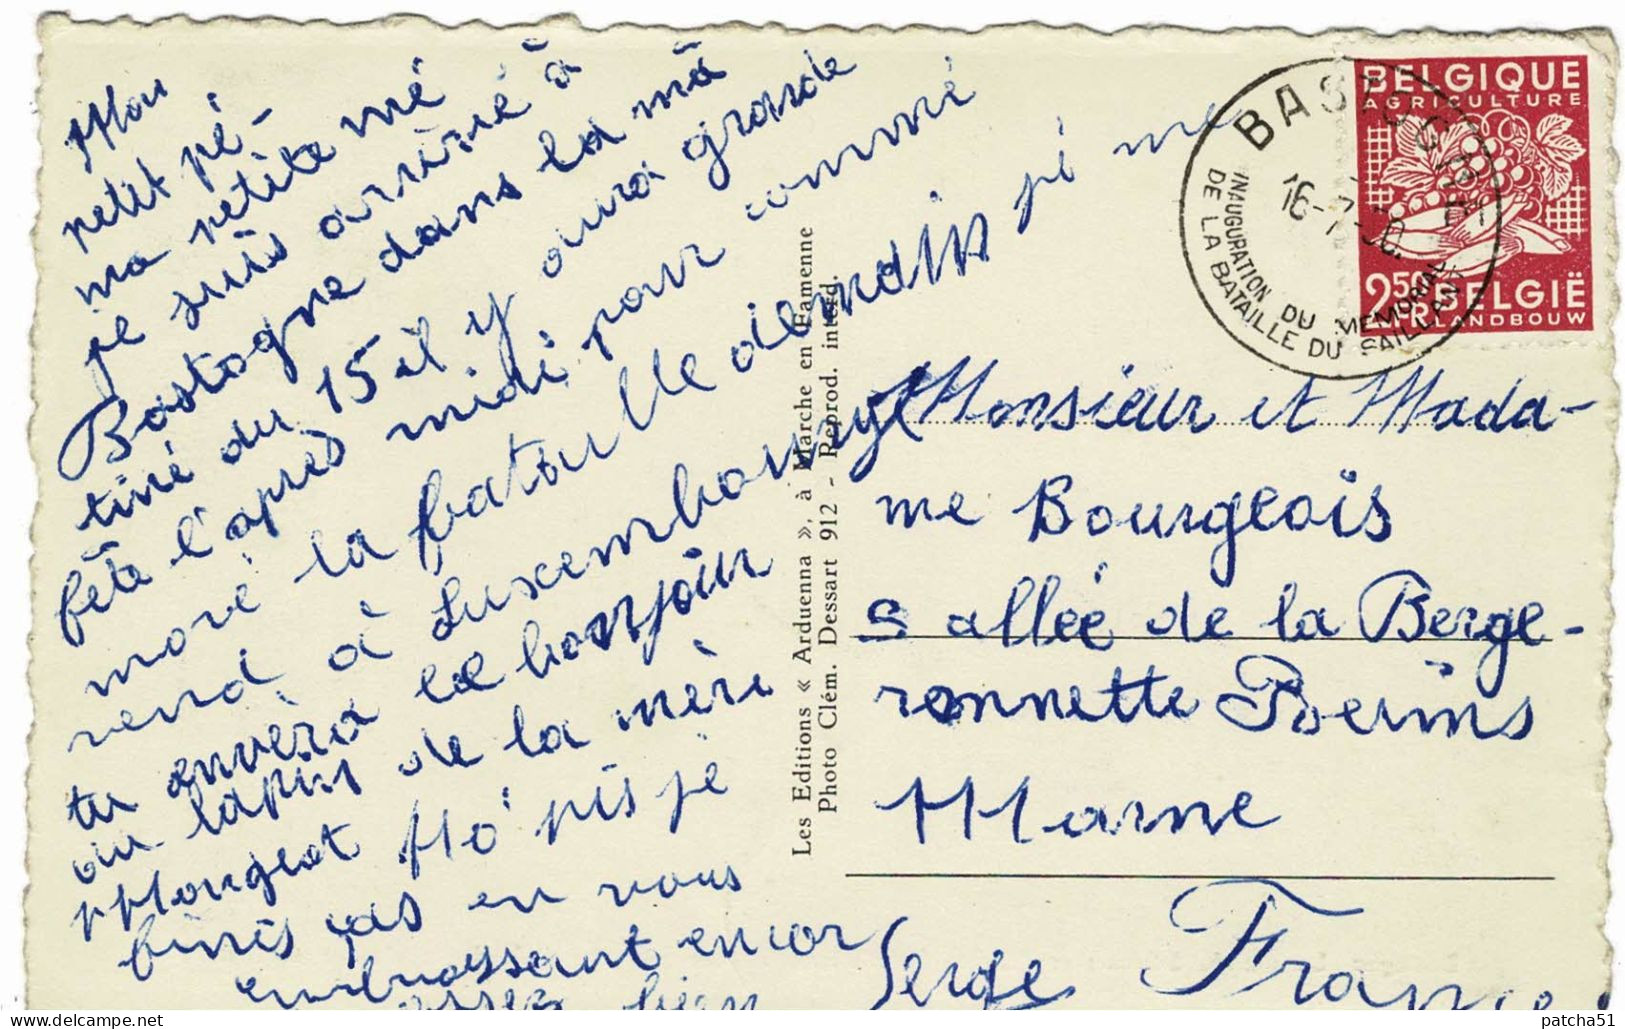 Mon
petit pé-
ma petite mé
je suis arrivé à
Bastogne dans la ma
tiné du 15 il y oura grande
fête l'après midi pour commé
moré la bataille demain je me
rend à Luxembourg
tu envèra le bonjour
au lapin de la mère
Mougeot Ho' pis je
finis pas en vous
embrassant encor
assez bien
Serge
Les Editions « Arduenna », à Marche en Famenne
Photo Clém. Dessart 912 - Reprod. interd.
BASTOGNE
16-7-50
INAUGURATION DU MEMORIAL
DE LA BATAILLE DU SAILLANT
BELGIQUE
AGRICULTURE
2.50 FR BELGIË
LANDBOUW
Monsieur et Mada-
me Bourgeois
5 allée de la Berge-
ronnette Reims
Marne
France
patcha51